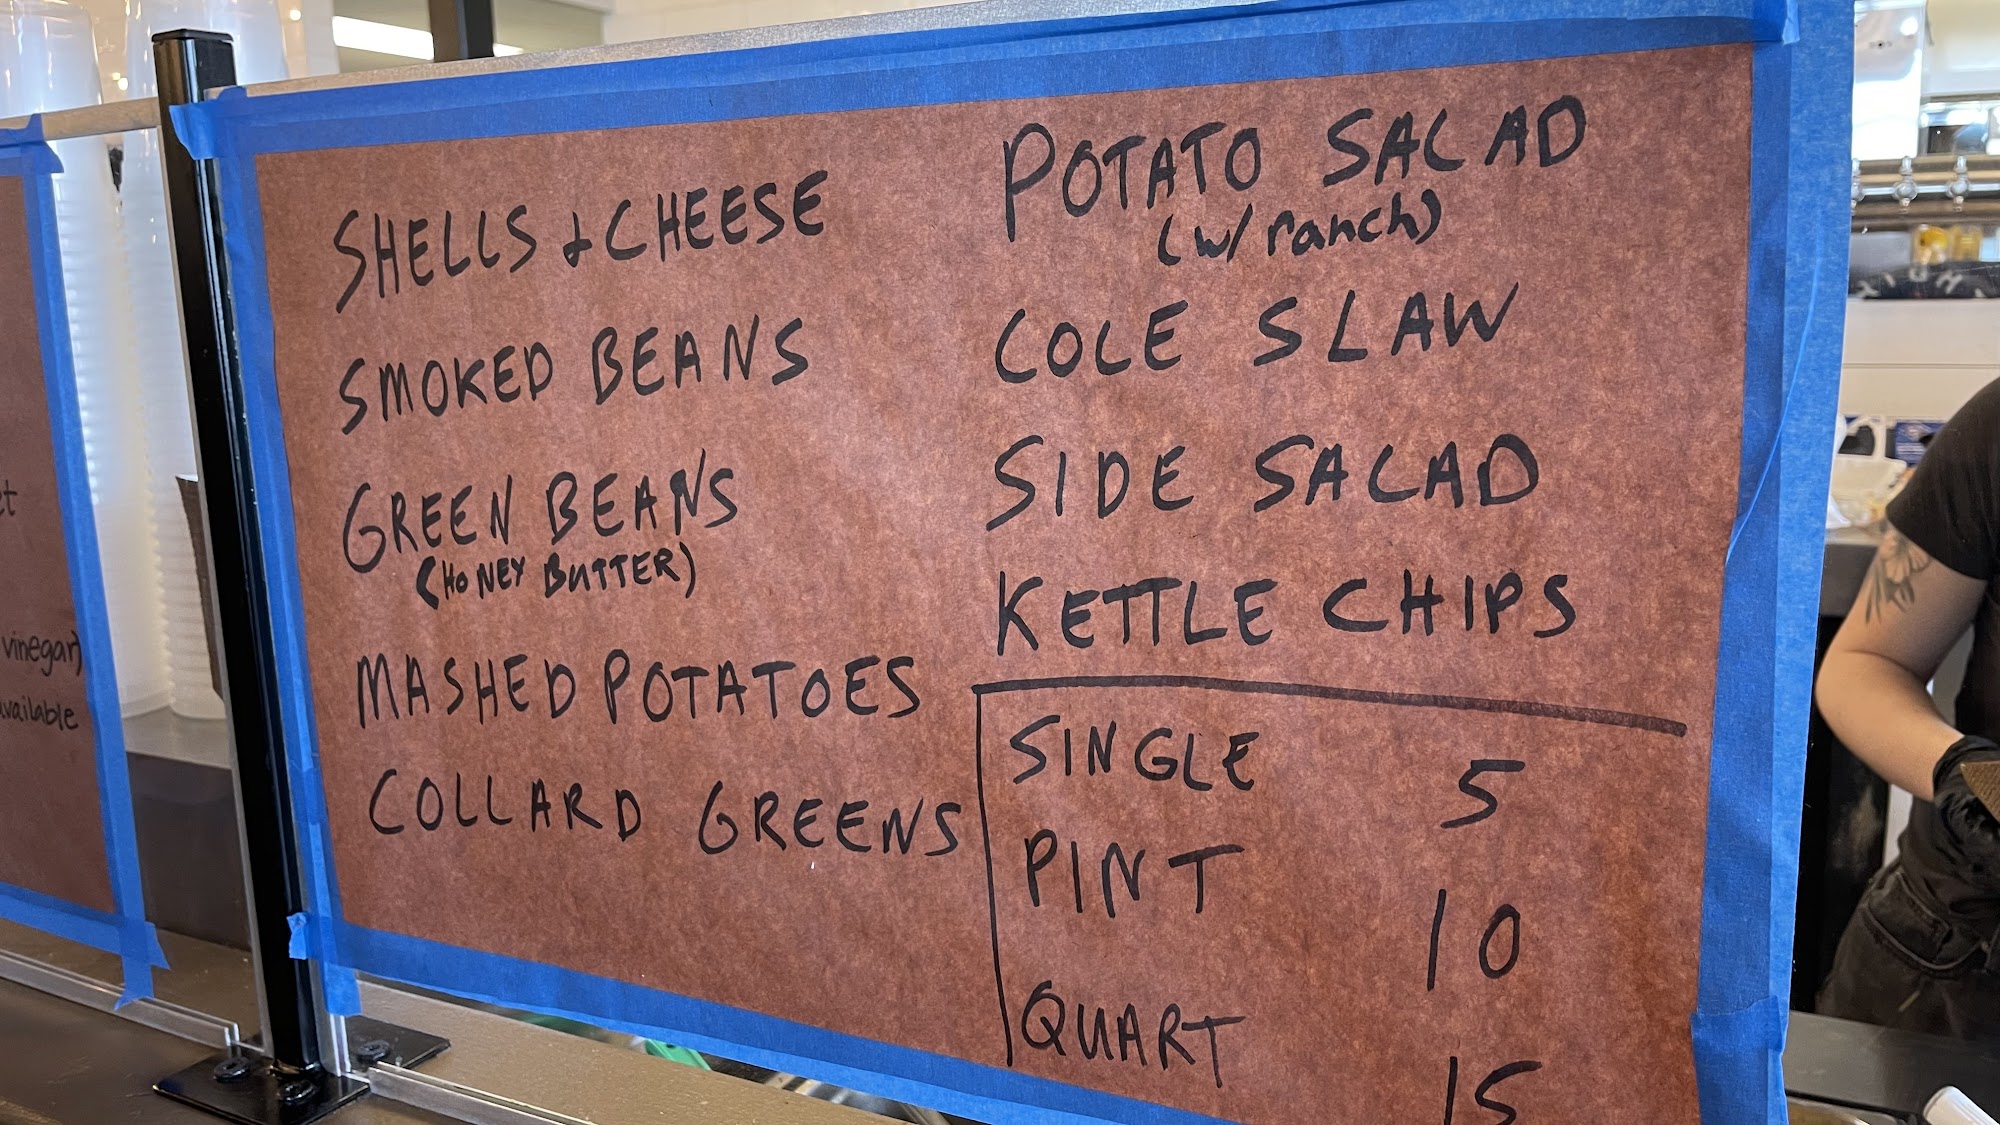 et
vinegar)
available
SHELLS & CHEESE
SMOKED BEANS
GREEN BEANS
(HONEY BUTTER)
MASHED POTATOES
COLLARD GREENS
POTATO SALAD
(w/ ranch)
COLE SLAW
SIDE SALAD
KETTLE CHIPS
SINGLE 5
PINT 10
QUART 15